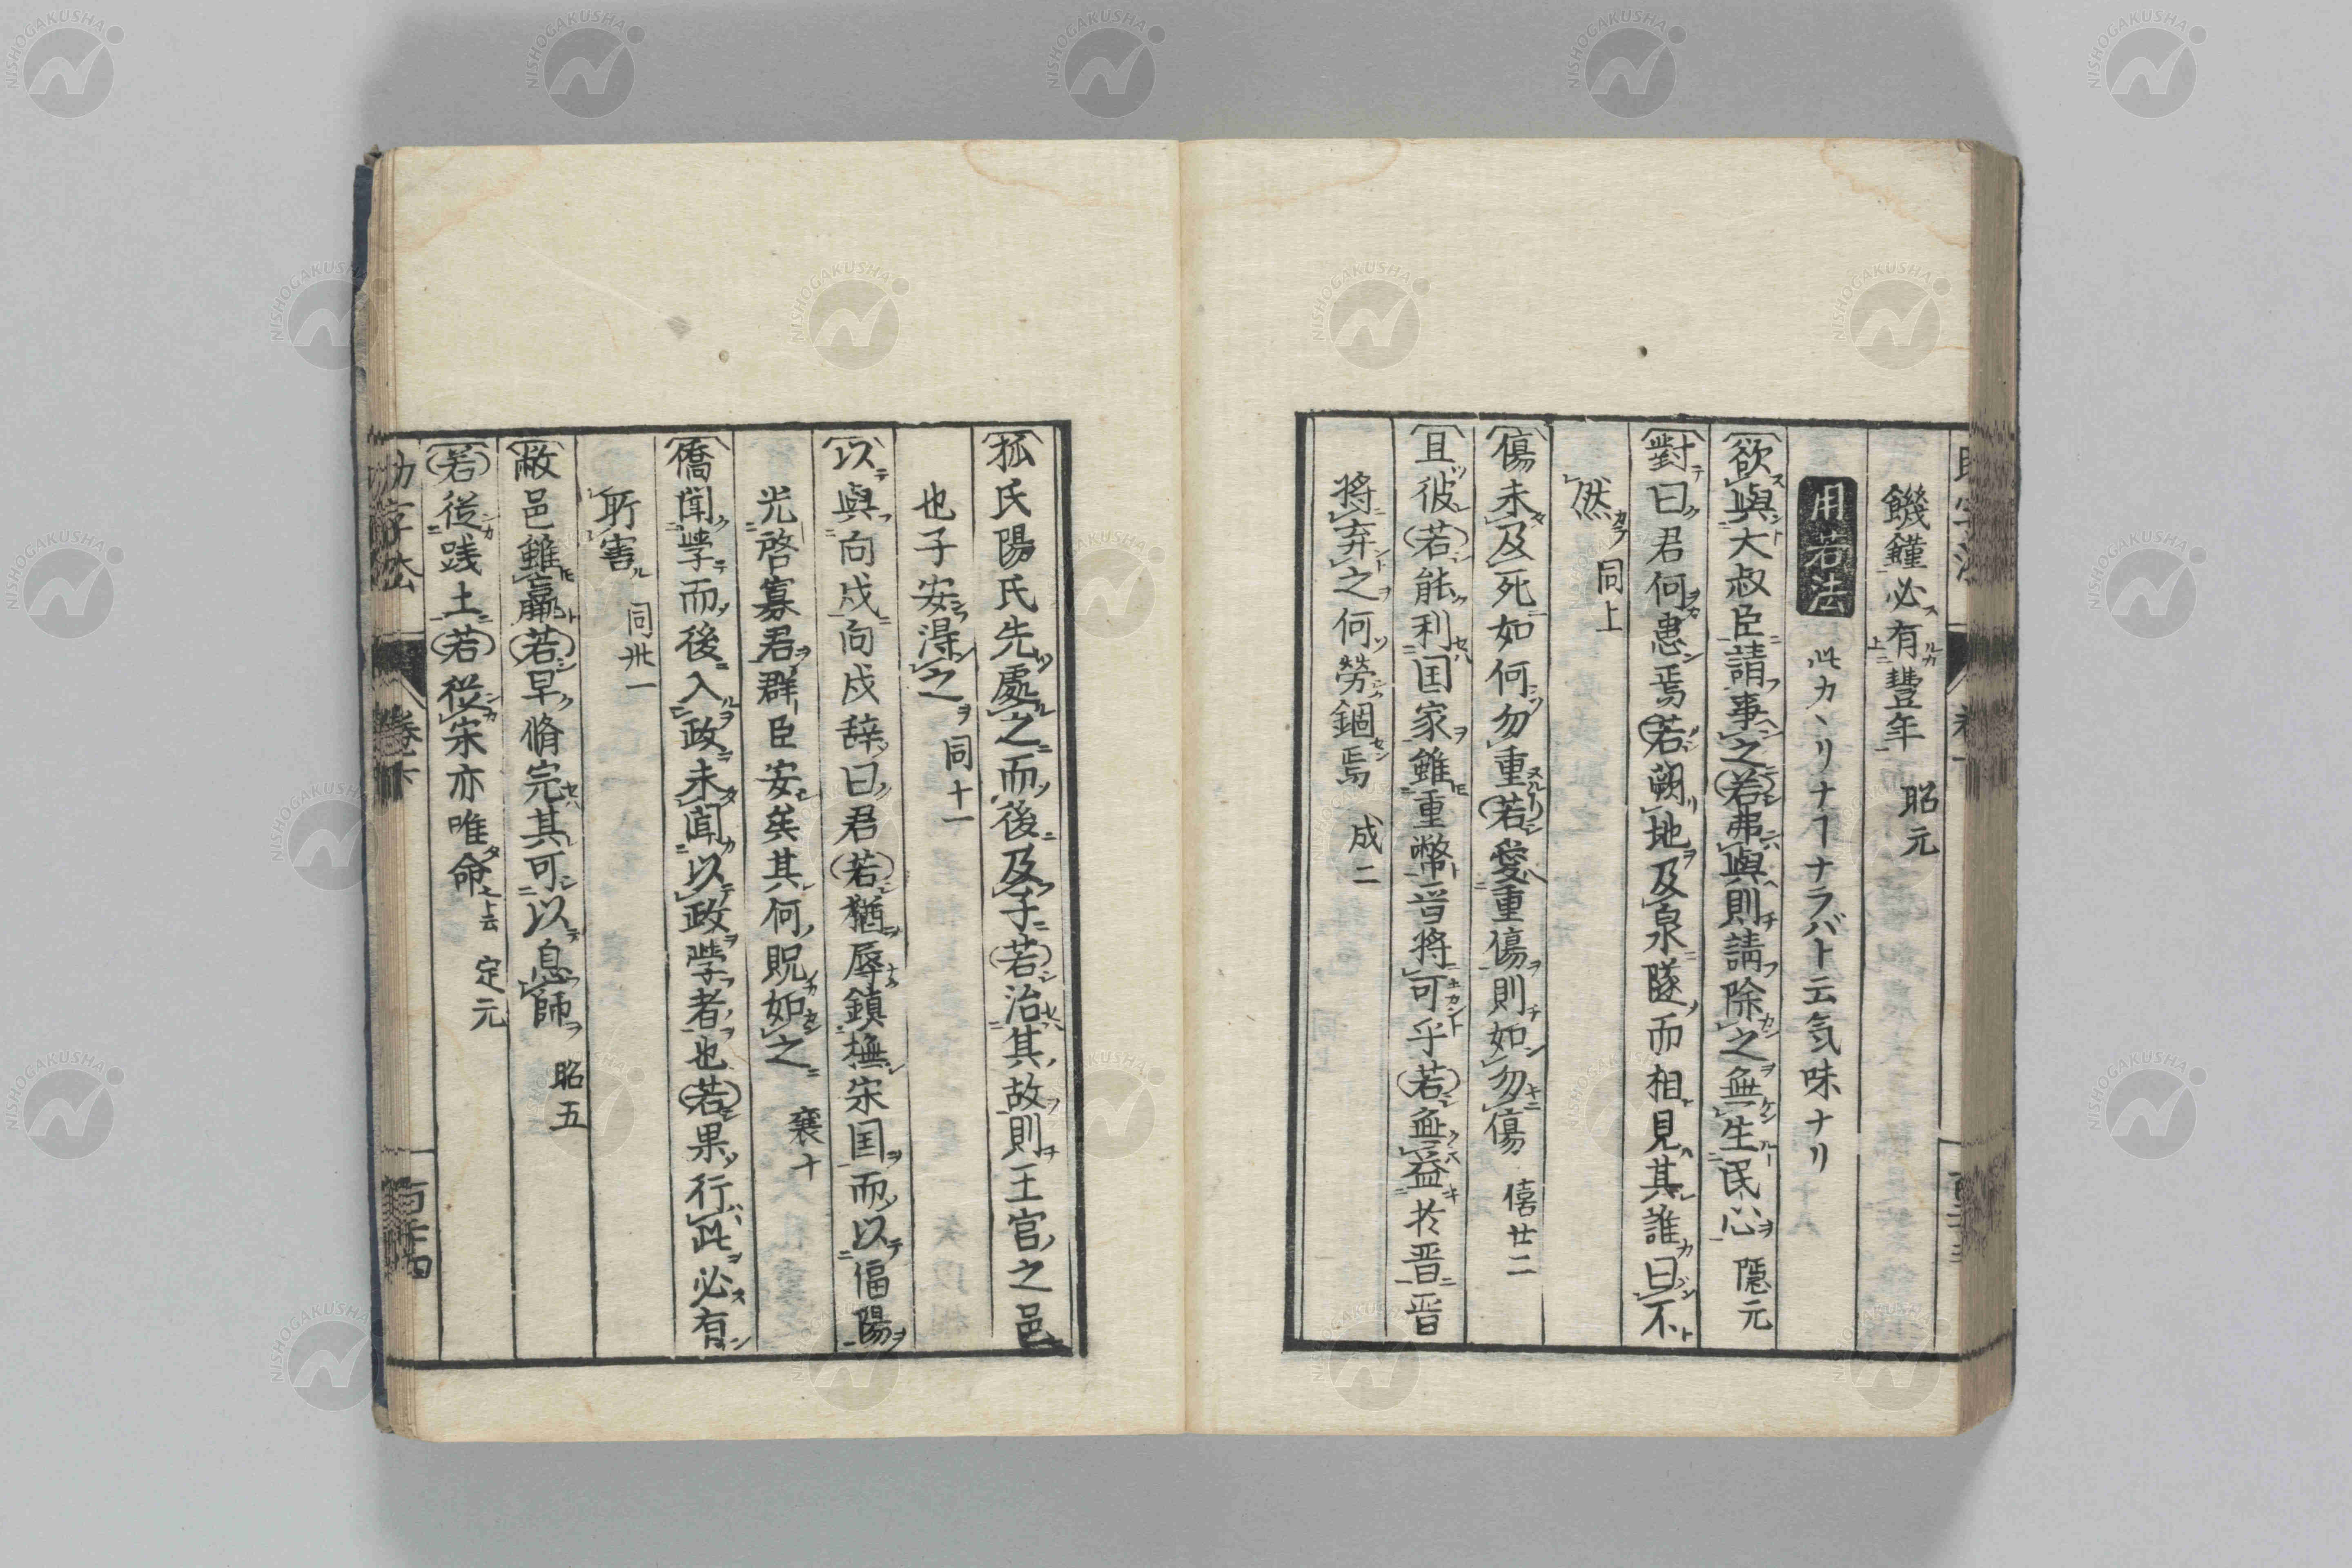 饑饉必有豐年 昭元
用若法 此カヽリナーナラバト云気味ナリ
欲與大叔臣請事之若弗與則請除之無生民心 隱元
對曰君何患焉若闕地及泉隧而相見其誰曰不
然 同上
傷未及死如何勿重若愛重傷則如勿傷 僖廿二
且彼若能利国家雖重幣晋將可乎若無益於晋晋
將弃之何勞錮焉 成二
狐氏陽氏先處之而後及子若治其故則王官之邑
也子安得之 同十一
以與向戍向戍辞曰君若猶辱鎮撫宋国而以偪陽
光啓寡君群臣安矣其何貺如之 襄十
僑聞斈而後入政未聞以政斈者也若果行此必有
所害 同卅一
敝邑雖羸若早脩完其可以息師 昭五
若從践土若從宋亦唯命 云 定元
NISHOGAKUSHA